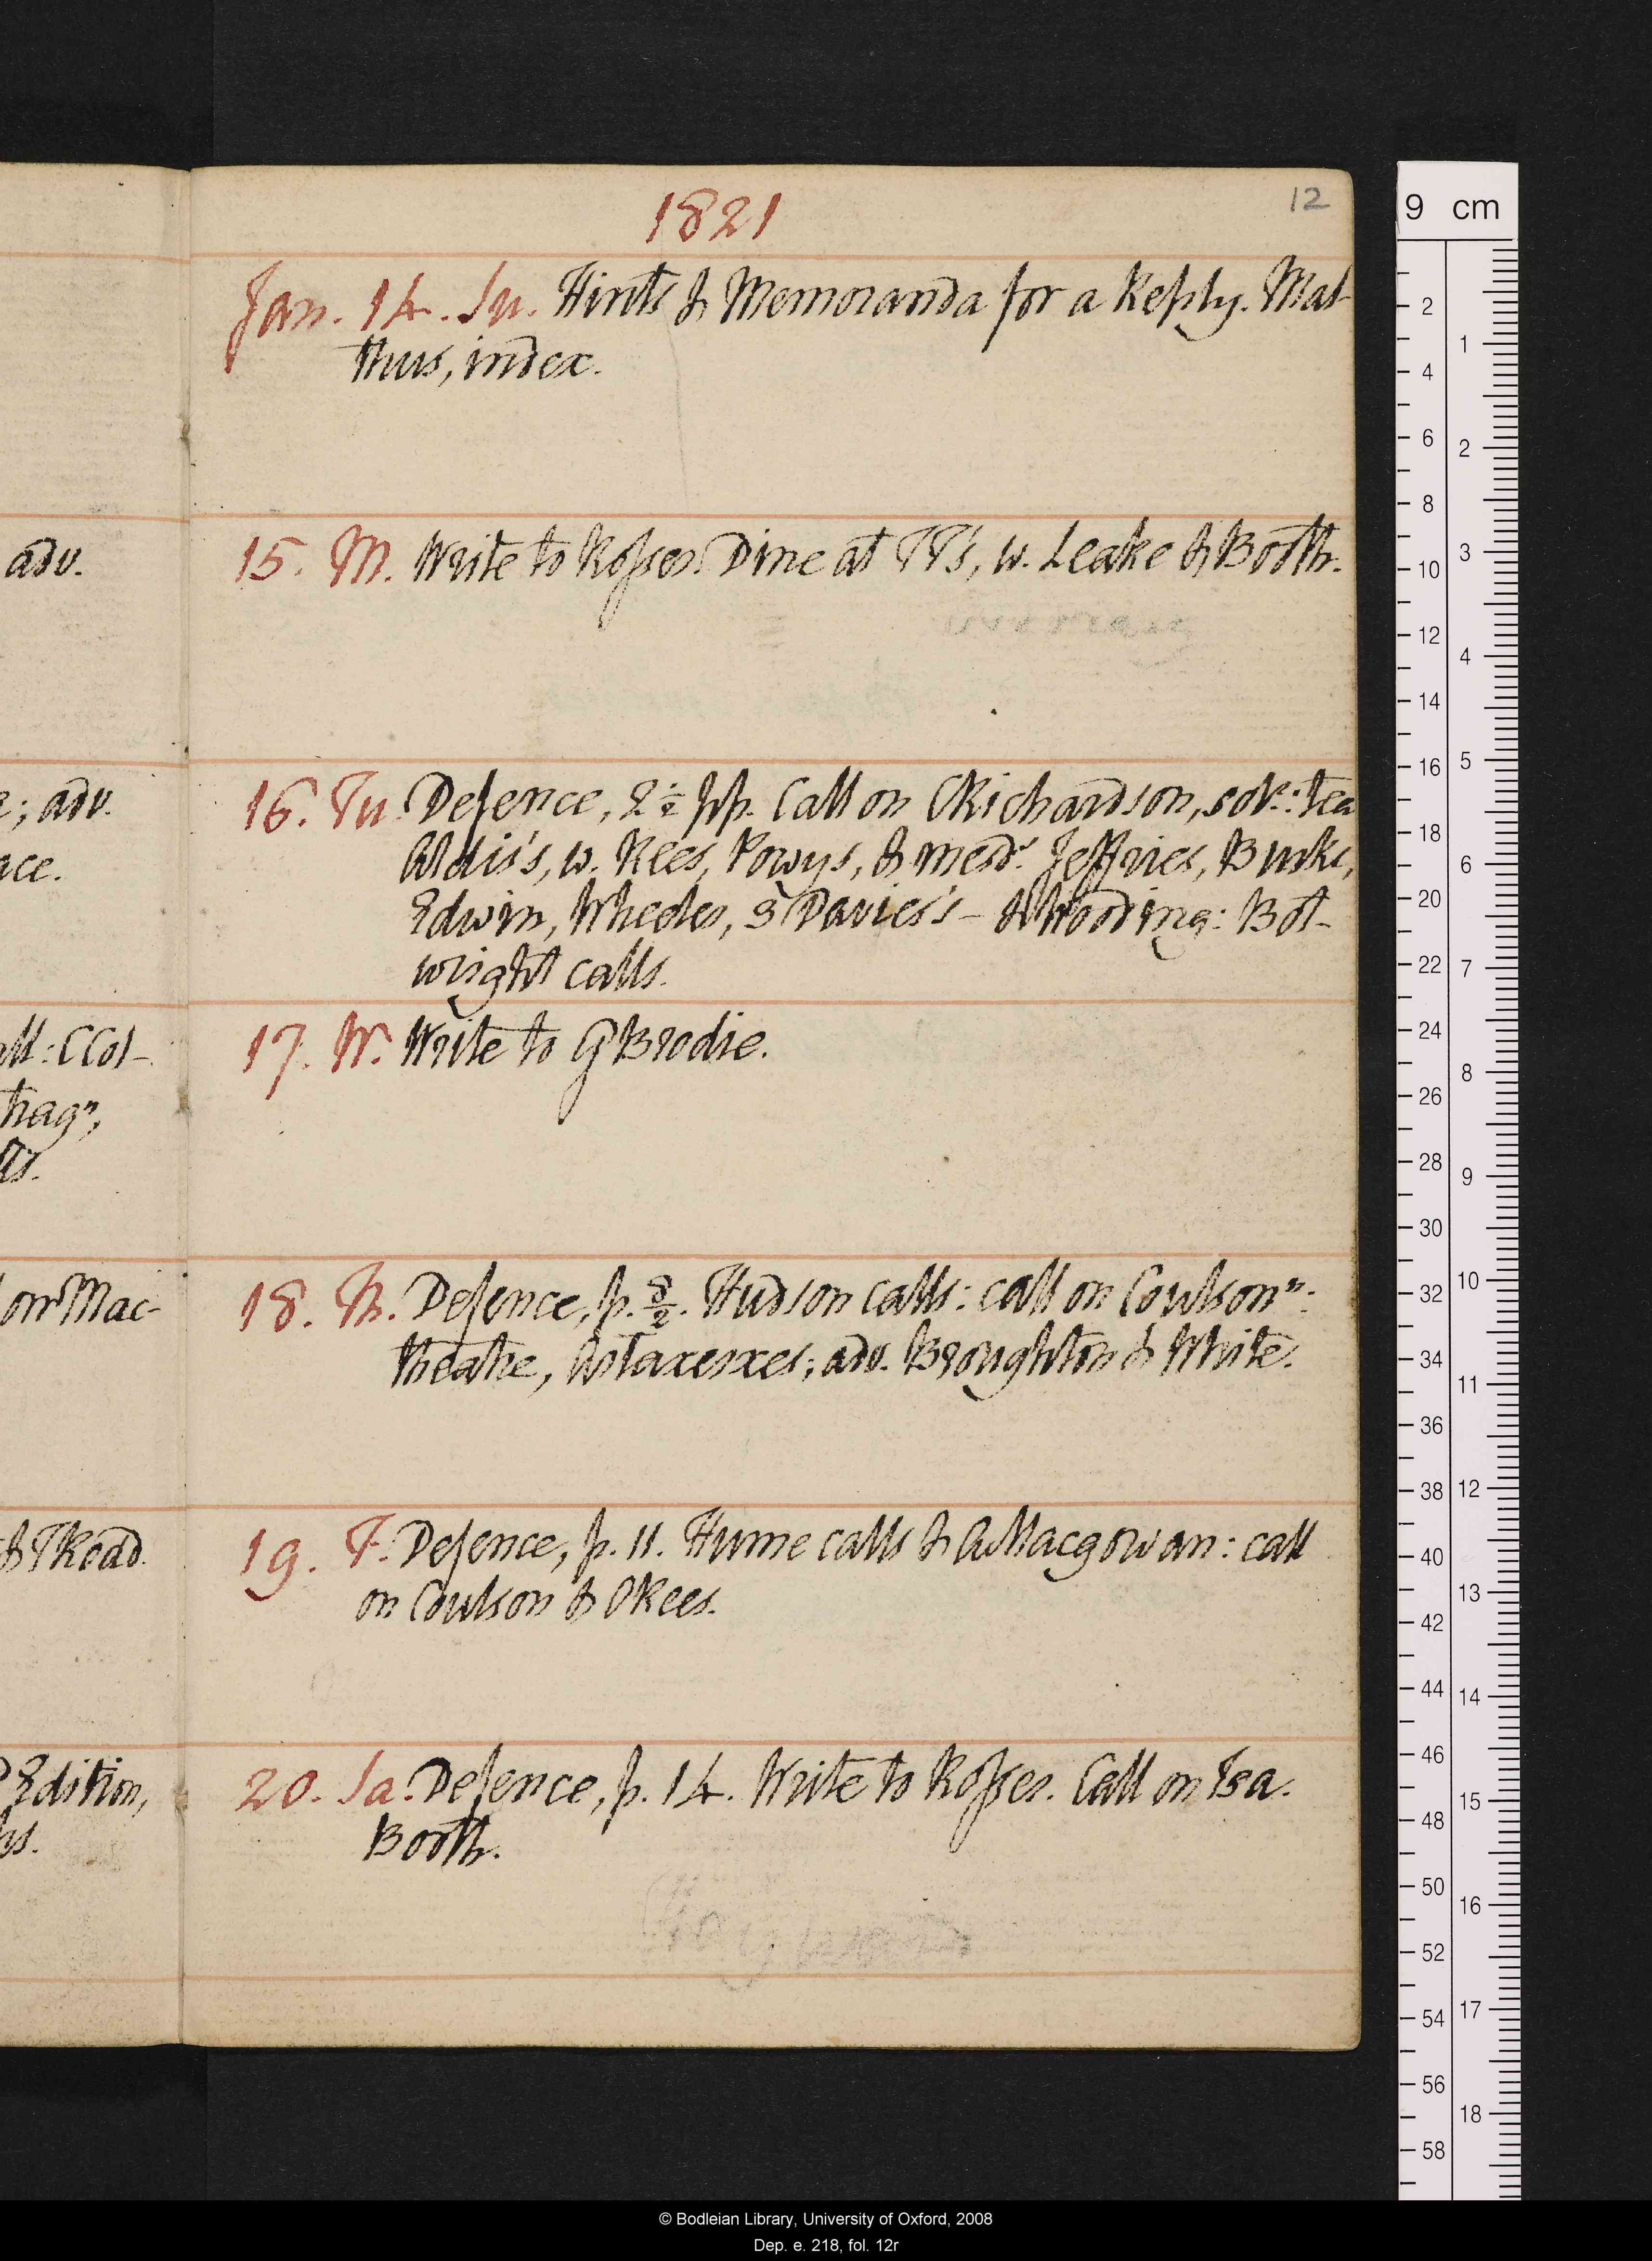 1821
12
Jan. 14. Su. Hints & Memoranda for a Reply. Mal-
thus, index.
15. M. Write to Rosser. Dine at TT's, w. Leake & Booth.
16. Tu. Defence, 2½ pp. Call on CRichardson, : tea
Aldis's, w. Rees, Powys, & mesdes Jeffries, Burke,
Edwin, Wheeler, 3 Davies's – & Wooding: Bot-
wright calls.
17. W. Write to GBrodie.
18. Th. Defence, p. 8/2. Hudson calls: call on Coulson n:
theatre, Artaxerxes; adv. Broughton & White.
19. F. Defence, p. 11. Hume calls & AMacgowan: call
on Coulson & ORees.
20. Sa. Defence, p. 14. Write to Rosser. Call on Isa.
Booth.
adv.
; adv.
ce.
all: CCol-
hagn,
on Mac-
& TRead.
Edition,
9 cm
2
4
6
8
10
12
14
16
18
20
22
24
26
28
30
32
34
36
38
40
42
44
46
48
50
52
54
56
58
1
2
3
4
5
6
7
8
9
10
11
12
13
14
15
16
17
18
© Bodleian Library, University of Oxford, 2008
Dep. e. 218, fol. 12r